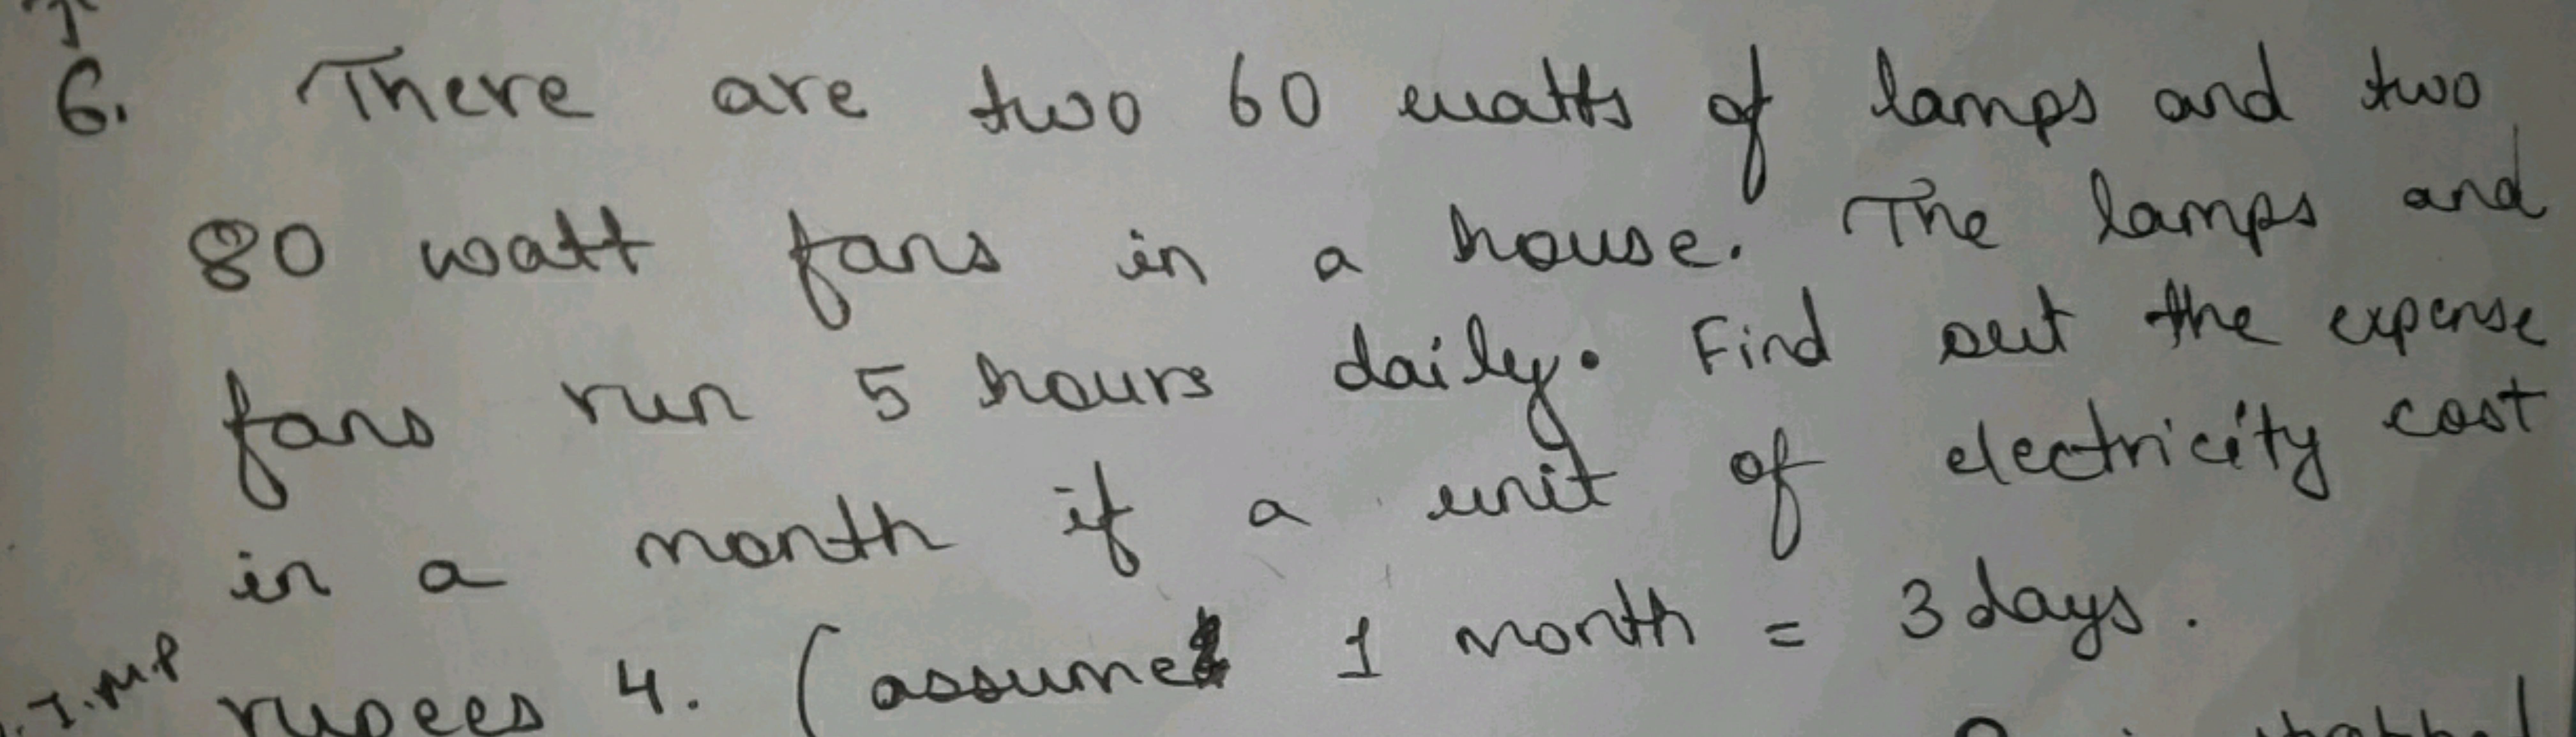 6. There are two 60 watts of lamps and two
80 watt fans in a house. The lamps and
fans run 5 hours daily. Find out the expense
in a month if a unit of electricity cost
rupees 4. (assume 1 month = 3 days.